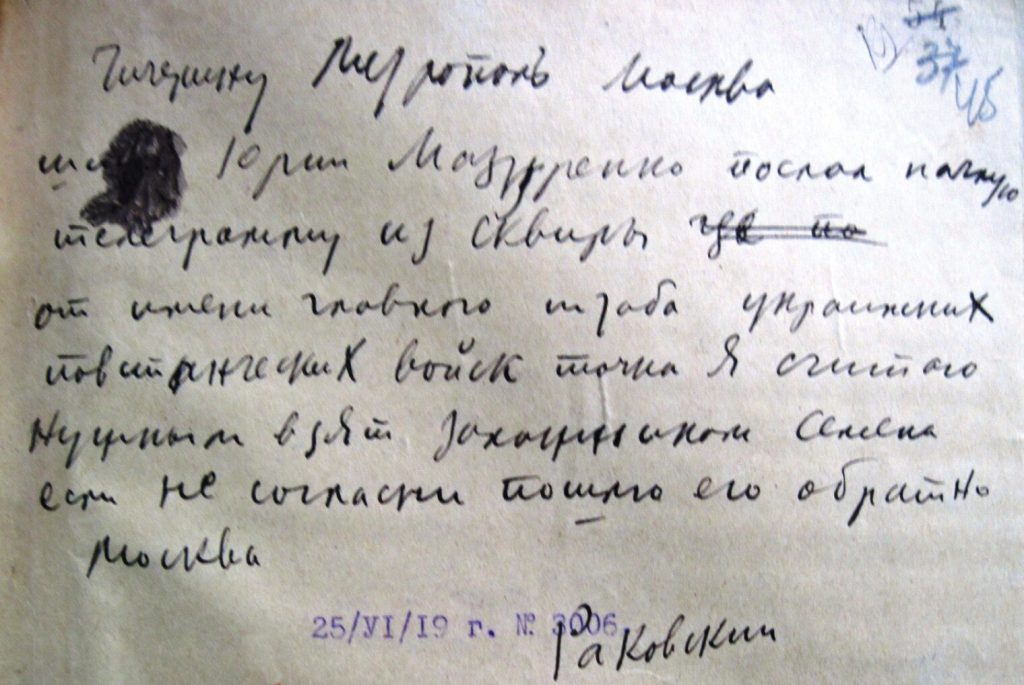 37
46
Чичерину Метрополь Москва
Юрии Мазуренко послал
телеграмму из Сквиры
от имени главного штаба украинских
повстанческих войск точка Я считаю
нужным взят заложником Семена
если не согласни пошлю его обратно
Москва
25/VI/19 г. № 3006
Раковскии